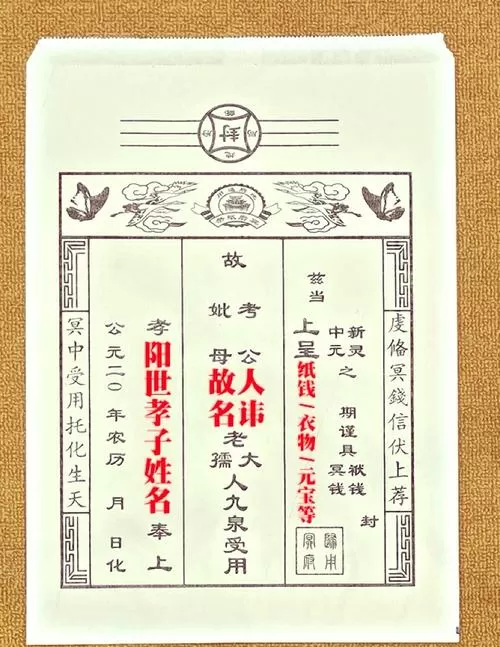 封
虔脩冥錢信伏上荐
兹当
新灵
中元
之
期谨具
袱钱
冥钱
封
上呈纸钱/衣物/元宝等
故
考
妣
公
母
故人
名讳
老大
孺人九泉受用
孝阳世孝子姓名奉上
公元二〇 年农历 月 日化
冥中受用托化生天